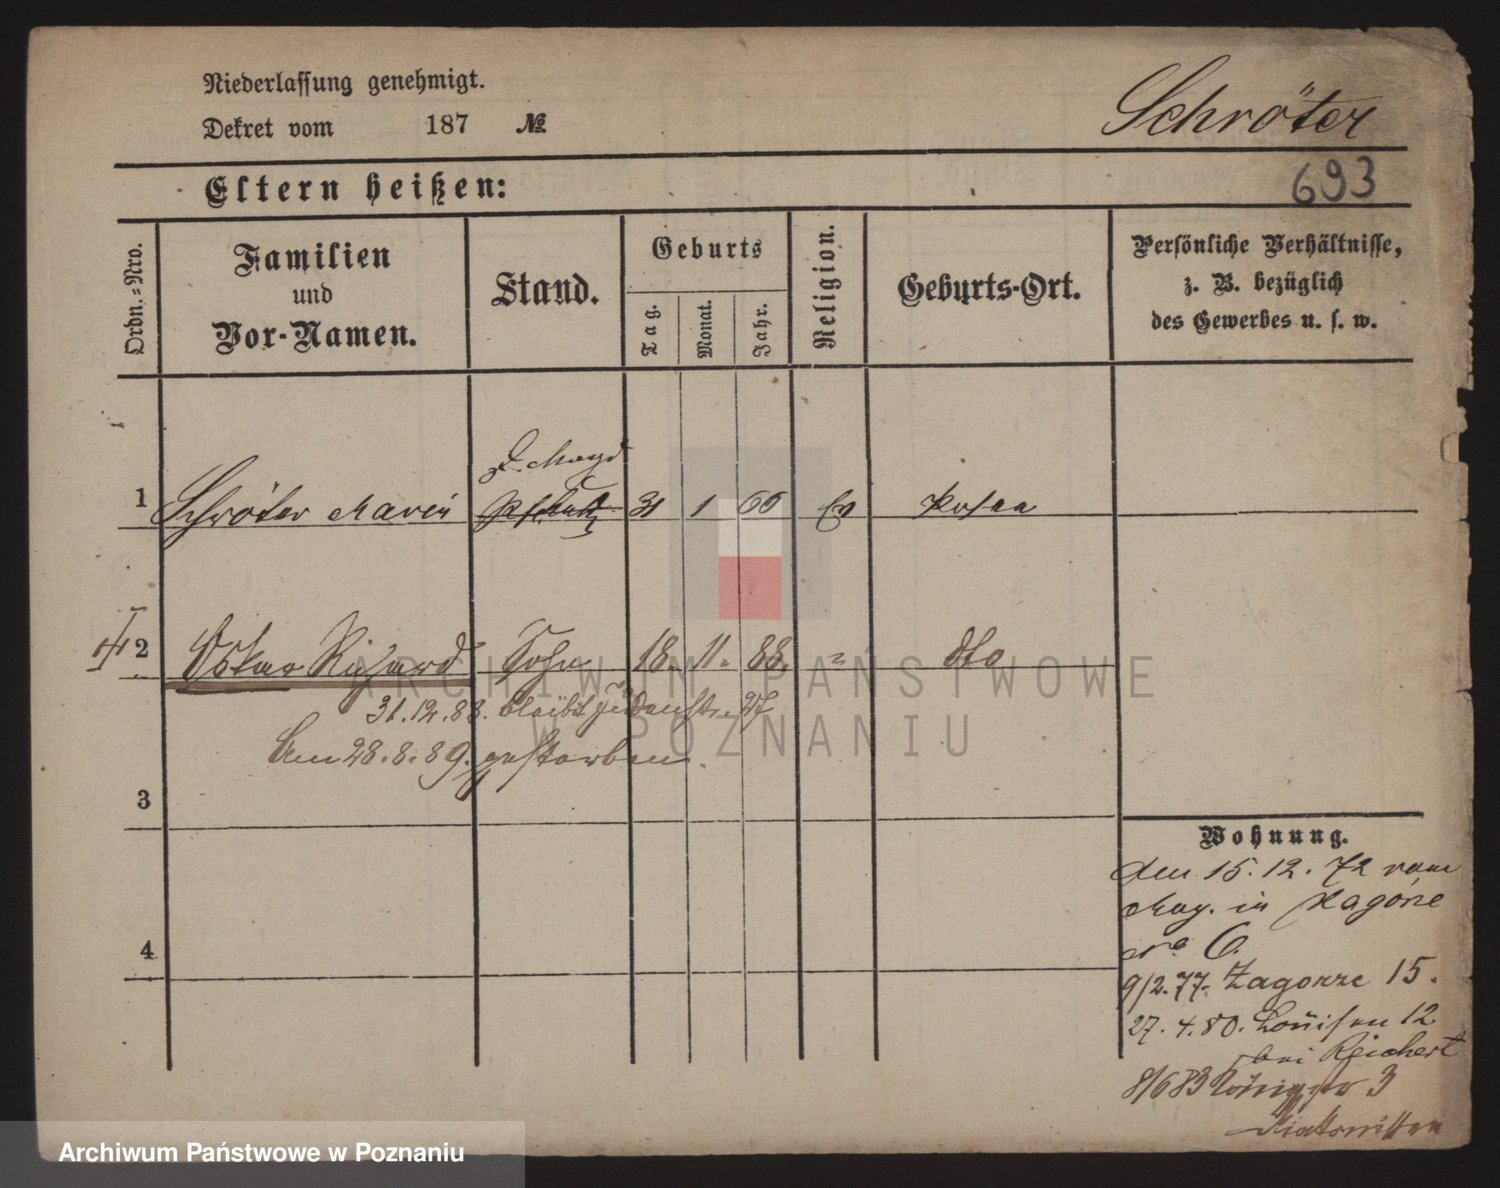 Niederlassung genehmigt.
Dekret vom 187 №
Schröter
693
Eltern heißen:
Ordn.-Nro.
Familien
und
Vor-Namen.
Stand.
Geburts
Tag.
Monat.
Jahr.
Religion.
Geburts-Ort.
Persönliche Verhältnisse,
z. B. bezüglich
des Gewerbes u. s. w.
1 Schröter Marie 31 1 66 Ev Posen
2 Oskar Richard Sohn 18. 11. 88. " dto
31.12.88. bleibt Judenstr. 27
Am 28.8.89. gestorben.
3
4
Wohnung.
den 15.12.72 vom
Mag. in Zagórze
No 6.
9/2.77. Zagorze 15.
27.4.80. Louisen 12
bei Reichert
8/6 83 Königstr 3
ARCHIWUM PAŃSTWOWE
W POZNANIU
Archiwum Państwowe w Poznaniu